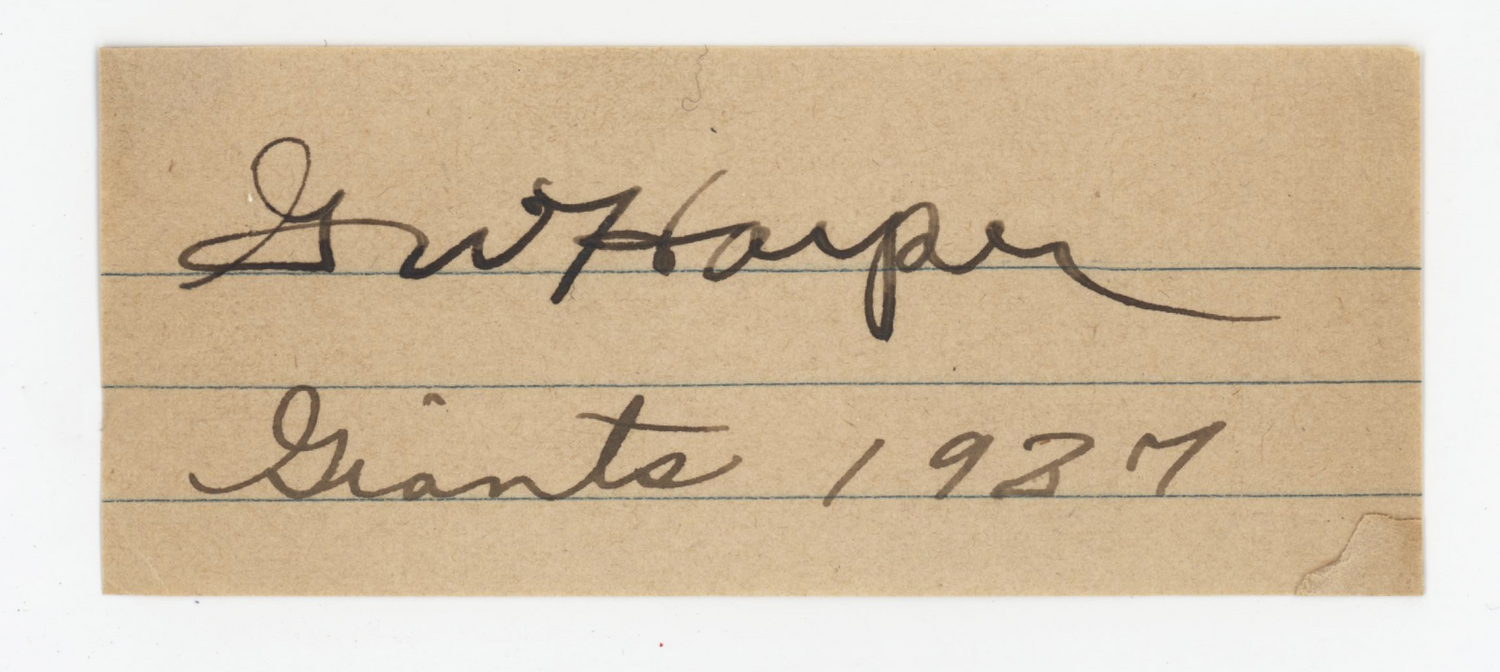 GW Harper
Giants 1927